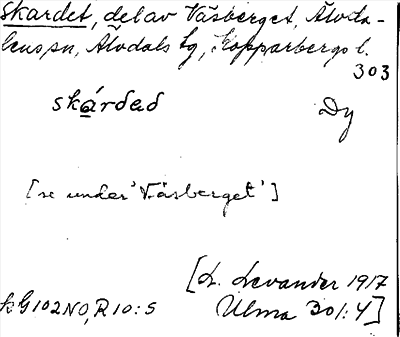 skardet, del av Våsberget, Älvda-
lens sn, Älvdals tg, Kopparbergs l.
303
skárdad Dy
[se under 'Våsberget']
[L. Levander 1917
kG102NO, R10:5 Ulma 301:4]